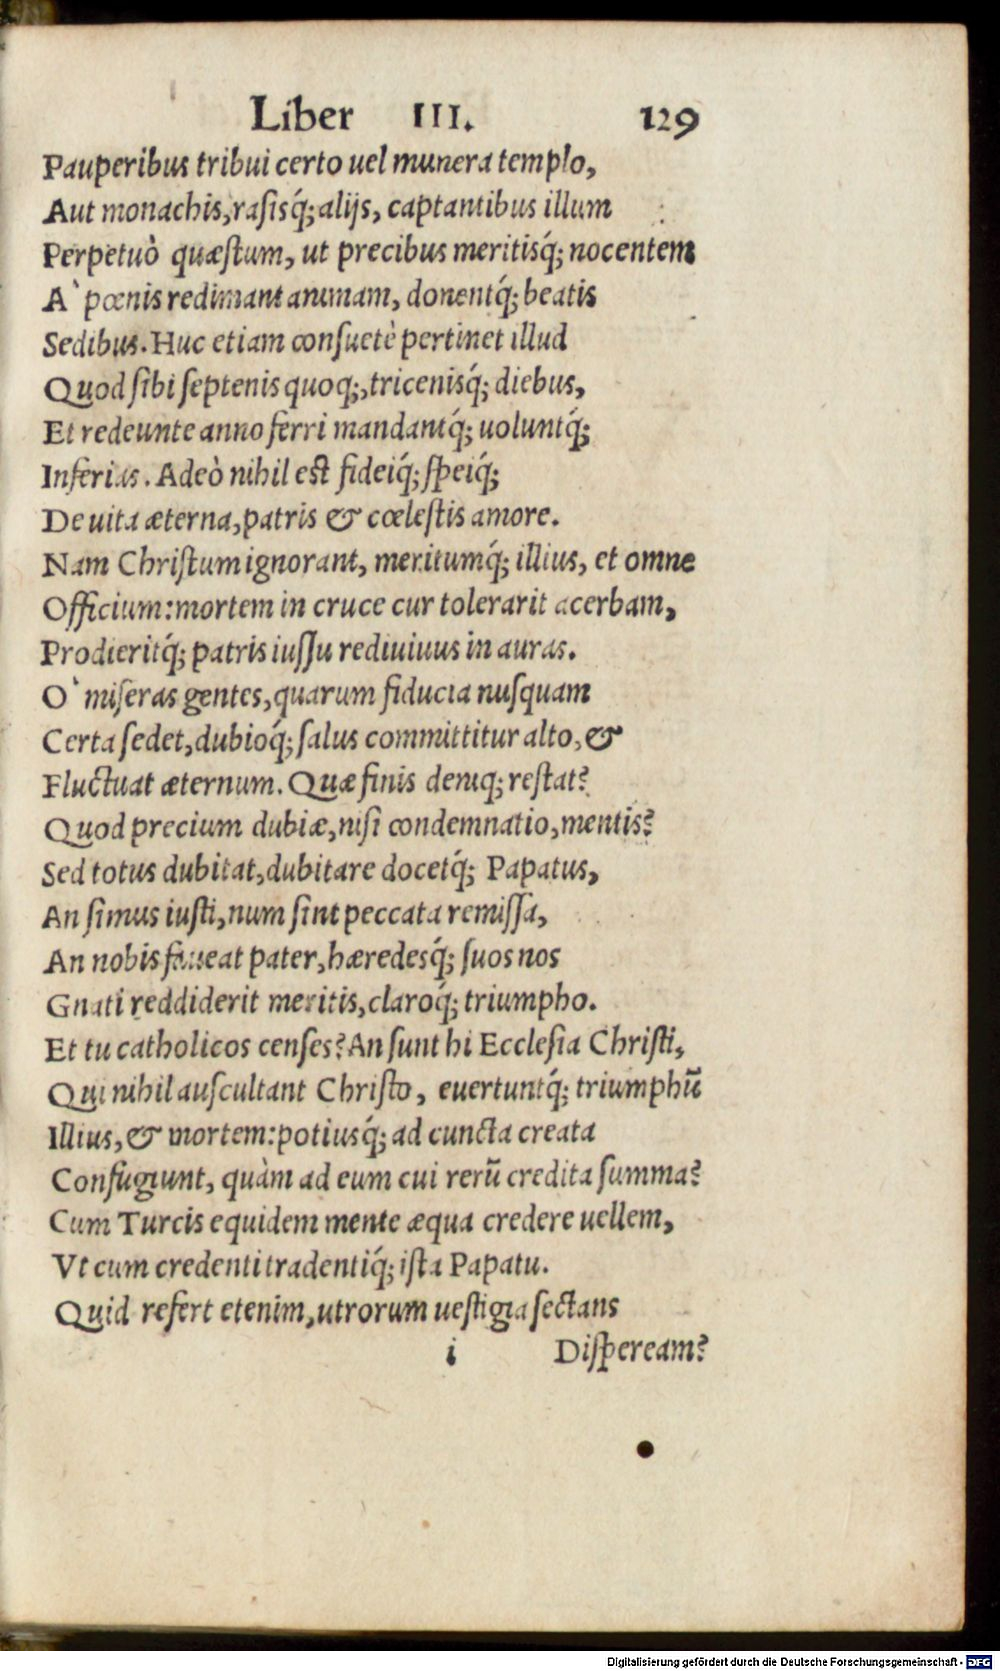 Liber III. 129
Pauperibus tribui certo uel munera templo,
Aut monachis, rasisq́; alijs, captantibus illum
Perpetuò quæstum, ut precibus meritisq́; nocentem
A` pœnis redimant animam, donentq́; beatis
Sedibus. Huc etiam consuetè pertinet illud
Quod sibi septenis quoq;, tricenisq́; diebus,
Et redeunte anno ferri mandantq́; uoluntq́;
Inferias. Adeò nihil est fideiq́; speiq́;
De uita æterna, patris & cœlestis amore.
Nam Christum ignorant, meritumq́; illius, et omne
Officium: mortem in cruce cur tolerarit acerbam,
Prodieritq́; patris iussu rediuiuus in auras.
O` miseras gentes, quarum fiducia nusquam
Certa sedet, dubioq́; salus committitur alto, &
Fluctuat æternum. Quæ finis deniq; restat?
Quod precium dubiæ, nisi condemnatio, mentis?
Sed totus dubitat, dubitare docetq́; Papatus,
An simus iusti, num sint peccata remissa,
An nobis faueat pater, hæredesq́; suos nos
Gnati reddiderit meritis, claroq́; triumpho.
Et tu catholicos censes? An sunt hi Ecclesia Christi,
Qui nihil auscultant Christo, euertuntq́; triumphū
Illius, & mortem: potiusq́; ad cuncta creata
Confugiunt, quàm ad eum cui rerū credita summa?
Cum Turcis equidem mente æqua credere uellem,
Vt cum credenti tradentiq́; ista Papatu.
Quid refert etenim, utrorum uestigia sectans
i Dispeream?
Digitalisierung gefördert durch die Deutsche Forschungsgemeinschaft - DFG